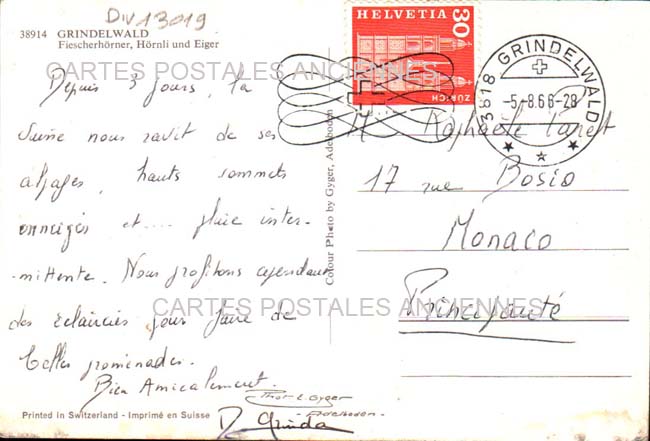 Div 13019
38914 GRINDELWALD
Fiescherhörner, Hörnli und Eiger
CARTES POSTALES ANCIENNES
Depuis 3 jours, la
Suisse nous ravit de ses
alpages, hauts sommets
enneigés et.... pluie inter-
mittente. Nous profitons cependant
des éclaircies pour faire de
belles promenades.
Bien Amicalement.
D. Grinda
Printed in Switzerland - Imprimé en Suisse
Phot. E. Gyger
- Adelboden -
Colour Photo by Gyger, Adelboden
HELVETIA 30
ZÜRICH
3818 GRINDELWALD
-5.-8.66-28
Raphaële
17 rue Bosio
Monaco
Principauté
CARTES POSTALES ANCIENNES